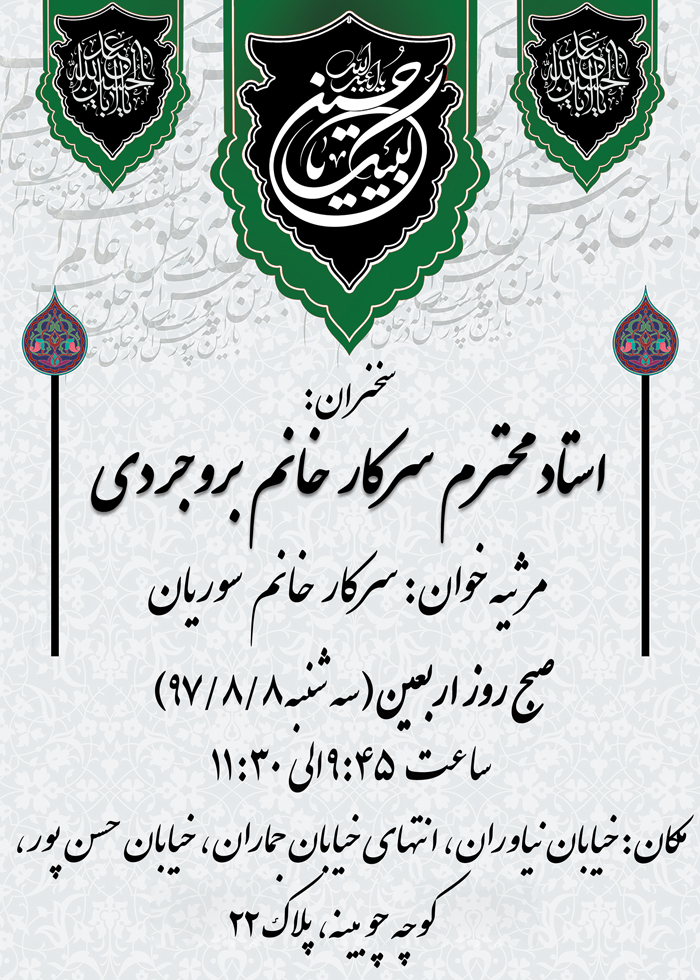 یا اباعبدالله
لبیک یا حسین
السلام علیک یا اباعبدالله
سخنران:
استاد محترم سرکار خانم بروجردی
مرثیه خوان: سرکار خانم سوریان
صبح روز اربعین (سه شنبه ۹۷/۸/۸)
ساعت ۹:۴۵ الی ۱۱:۳۰
مکان: خیابان نیاوران، انتهای خیابان جماران، خیابان حسن پور،
کوچه چوبینه، پلاک ۲۲